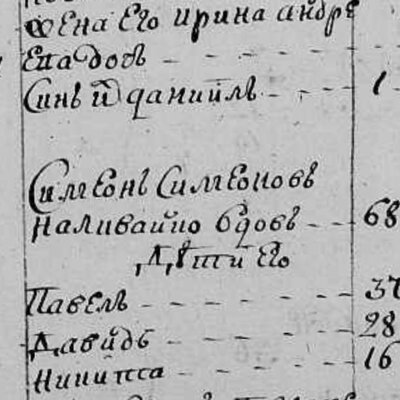 жена Его ирина андре
Синъ й даниилъ - - - 1
Симеонъ Симеоновъ
наливайко вдовъ - - 68
Дѣти Его
Павелъ - - - - - 37
Давидъ - - - - - 28
никитa - - - - 16